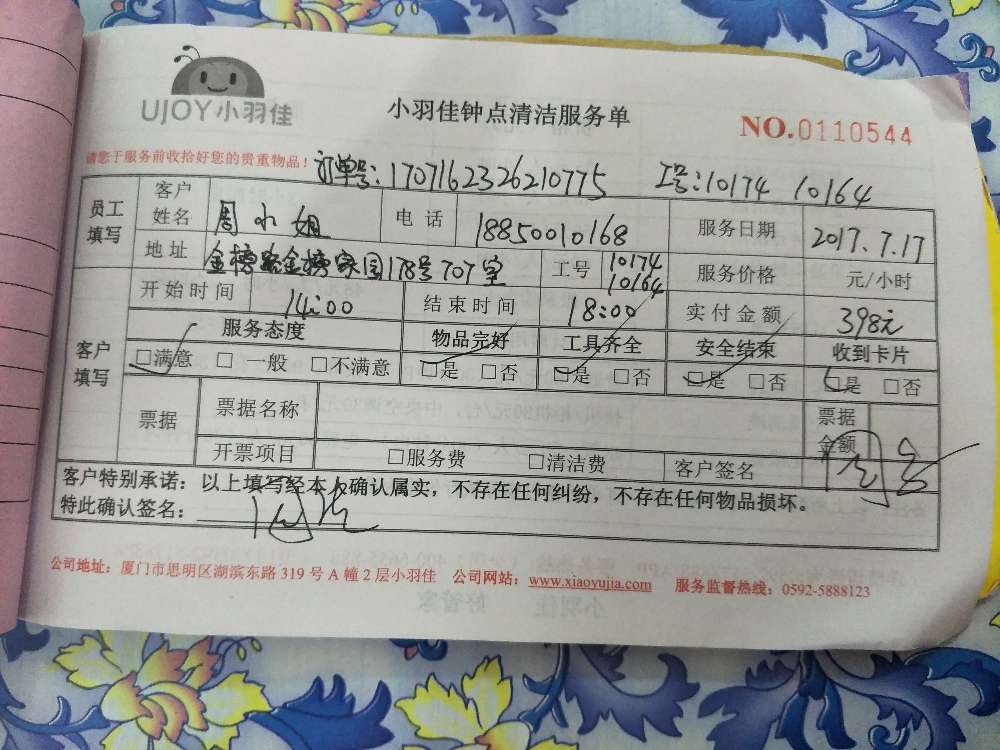 UJOY小羽佳
小羽佳钟点清洁服务单
NO.0110544
请您于服务前收拾好您的贵重物品！
订单号:1707162326210775 工号:10174 10164
员工填写 客户姓名 周小姐 电话 18850010168 服务日期 2017.7.17
地址 金榜路金榜家园178号707室 工号 10174 10164 服务价格 元/小时
开始时间 14:00 结束时间 18:00 实付金额 398元
客户填写 服务态度 物品完好 工具齐全 安全结束 收到卡片
□满意 □一般 □不满意 □是 □否 □是 □否 □是 □否 □是 □否
票据 票据名称 票据金额
开票项目 □服务费 □清洁费 客户签名
客户特别承诺：以上填写经本人确认属实，不存在任何纠纷，不存在任何物品损坏。
特此确认签名：
公司地址：厦门市思明区湖滨东路 319 号 A 幢 2 层小羽佳 公司网站：www.xiaoyujia.com 服务监督热线：0592-5888123